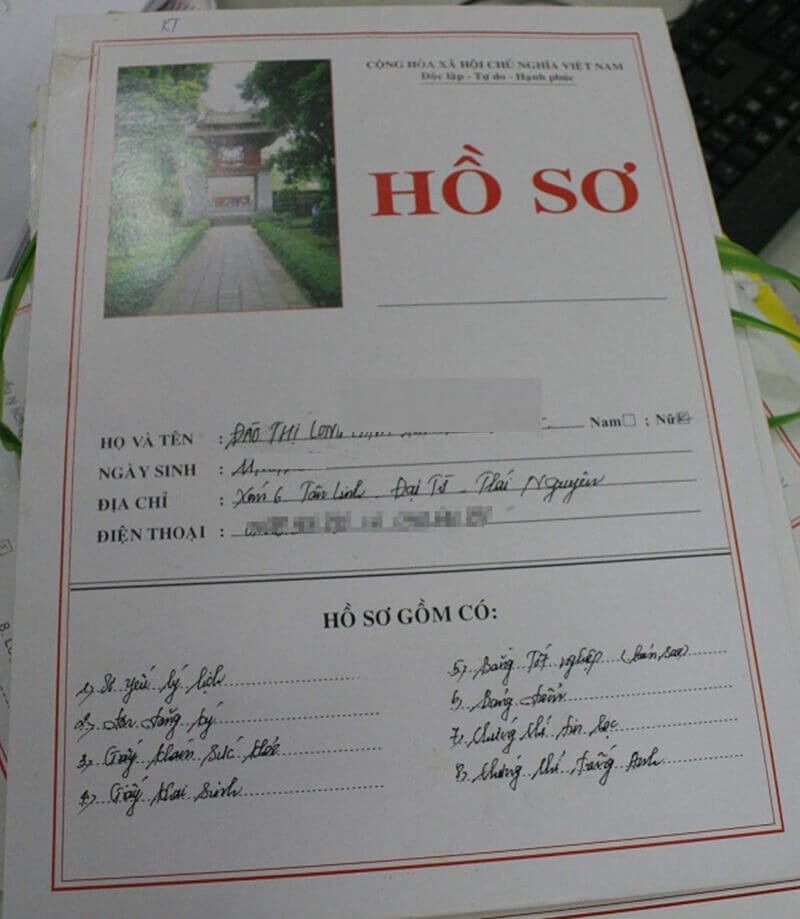 KT
CỘNG HÒA XÃ HỘI CHỦ NGHĨA VIỆT NAM
Độc lập - Tự do - Hạnh phúc
HỒ SƠ
HỌ VÀ TÊN : ĐÀO THỊ Nam ; Nữ
NGÀY SINH :
ĐỊA CHỈ : Xóm 6 Tân Linh - Đại Từ - Thái Nguyên
ĐIỆN THOẠI :
HỒ SƠ GỒM CÓ:
1, Sơ yếu lý lịch
2, Đơn đăng ký
3, Giấy khám sức khỏe
4, Giấy khai sinh
5, Bằng Tốt nghiệp (bản sao)
6, Bảng điểm
7, Chứng chỉ tin học
8, Chứng chỉ tiếng Anh